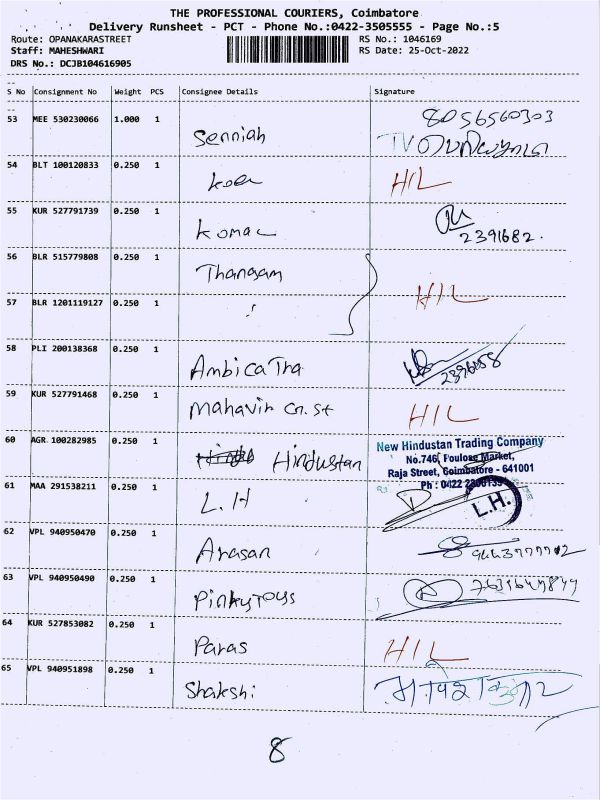 THE PROFESSIONAL COURIERS, Coimbatore
Delivery Runsheet - PCT - Phone No.:0422-3505555 - Page No.:5
Route: OPANAKARASTREET RS No.: 1046169
Staff: MAHESHWARI RS Date: 25-Oct-2022
DRS No.: DCJB104616905
S No Consignment No Weight PCS Consignee Details Signature
53 MEE 530230066 1.000 1 Senniah 8056560303
54 BLT 100120833 0.250 1 HIL
55 KUR 527791739 0.250 1 Komal 2391682.
56 BLR 515779808 0.250 1 Thangam
57 BLR 1201119127 0.250 1 HIL
58 PLI 200138368 0.250 1 Ambica Tha
59 KUR 527791468 0.250 1 Mahavir Cn. St HIL
60 AGR 100282985 0.250 1 Hindustan
New Hindustan Trading Company
No.746, Foulose Market,
Raja Street, Coimbatore - 641001
Ph : 0422
61 MAA 291538211 0.250 1 L.H L.H.
62 VPL 940950470 0.250 1 Arasan
63 VPL 940950490 0.250 1 Pinky Toys
64 KUR 527853082 0.250 1 Paras HIL
65 VPL 940951898 0.250 1 Shakshi
8